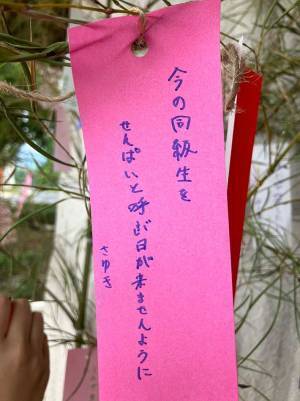 今の同級生を
せんぱいと呼ぶ日が来ませんように
さゆき